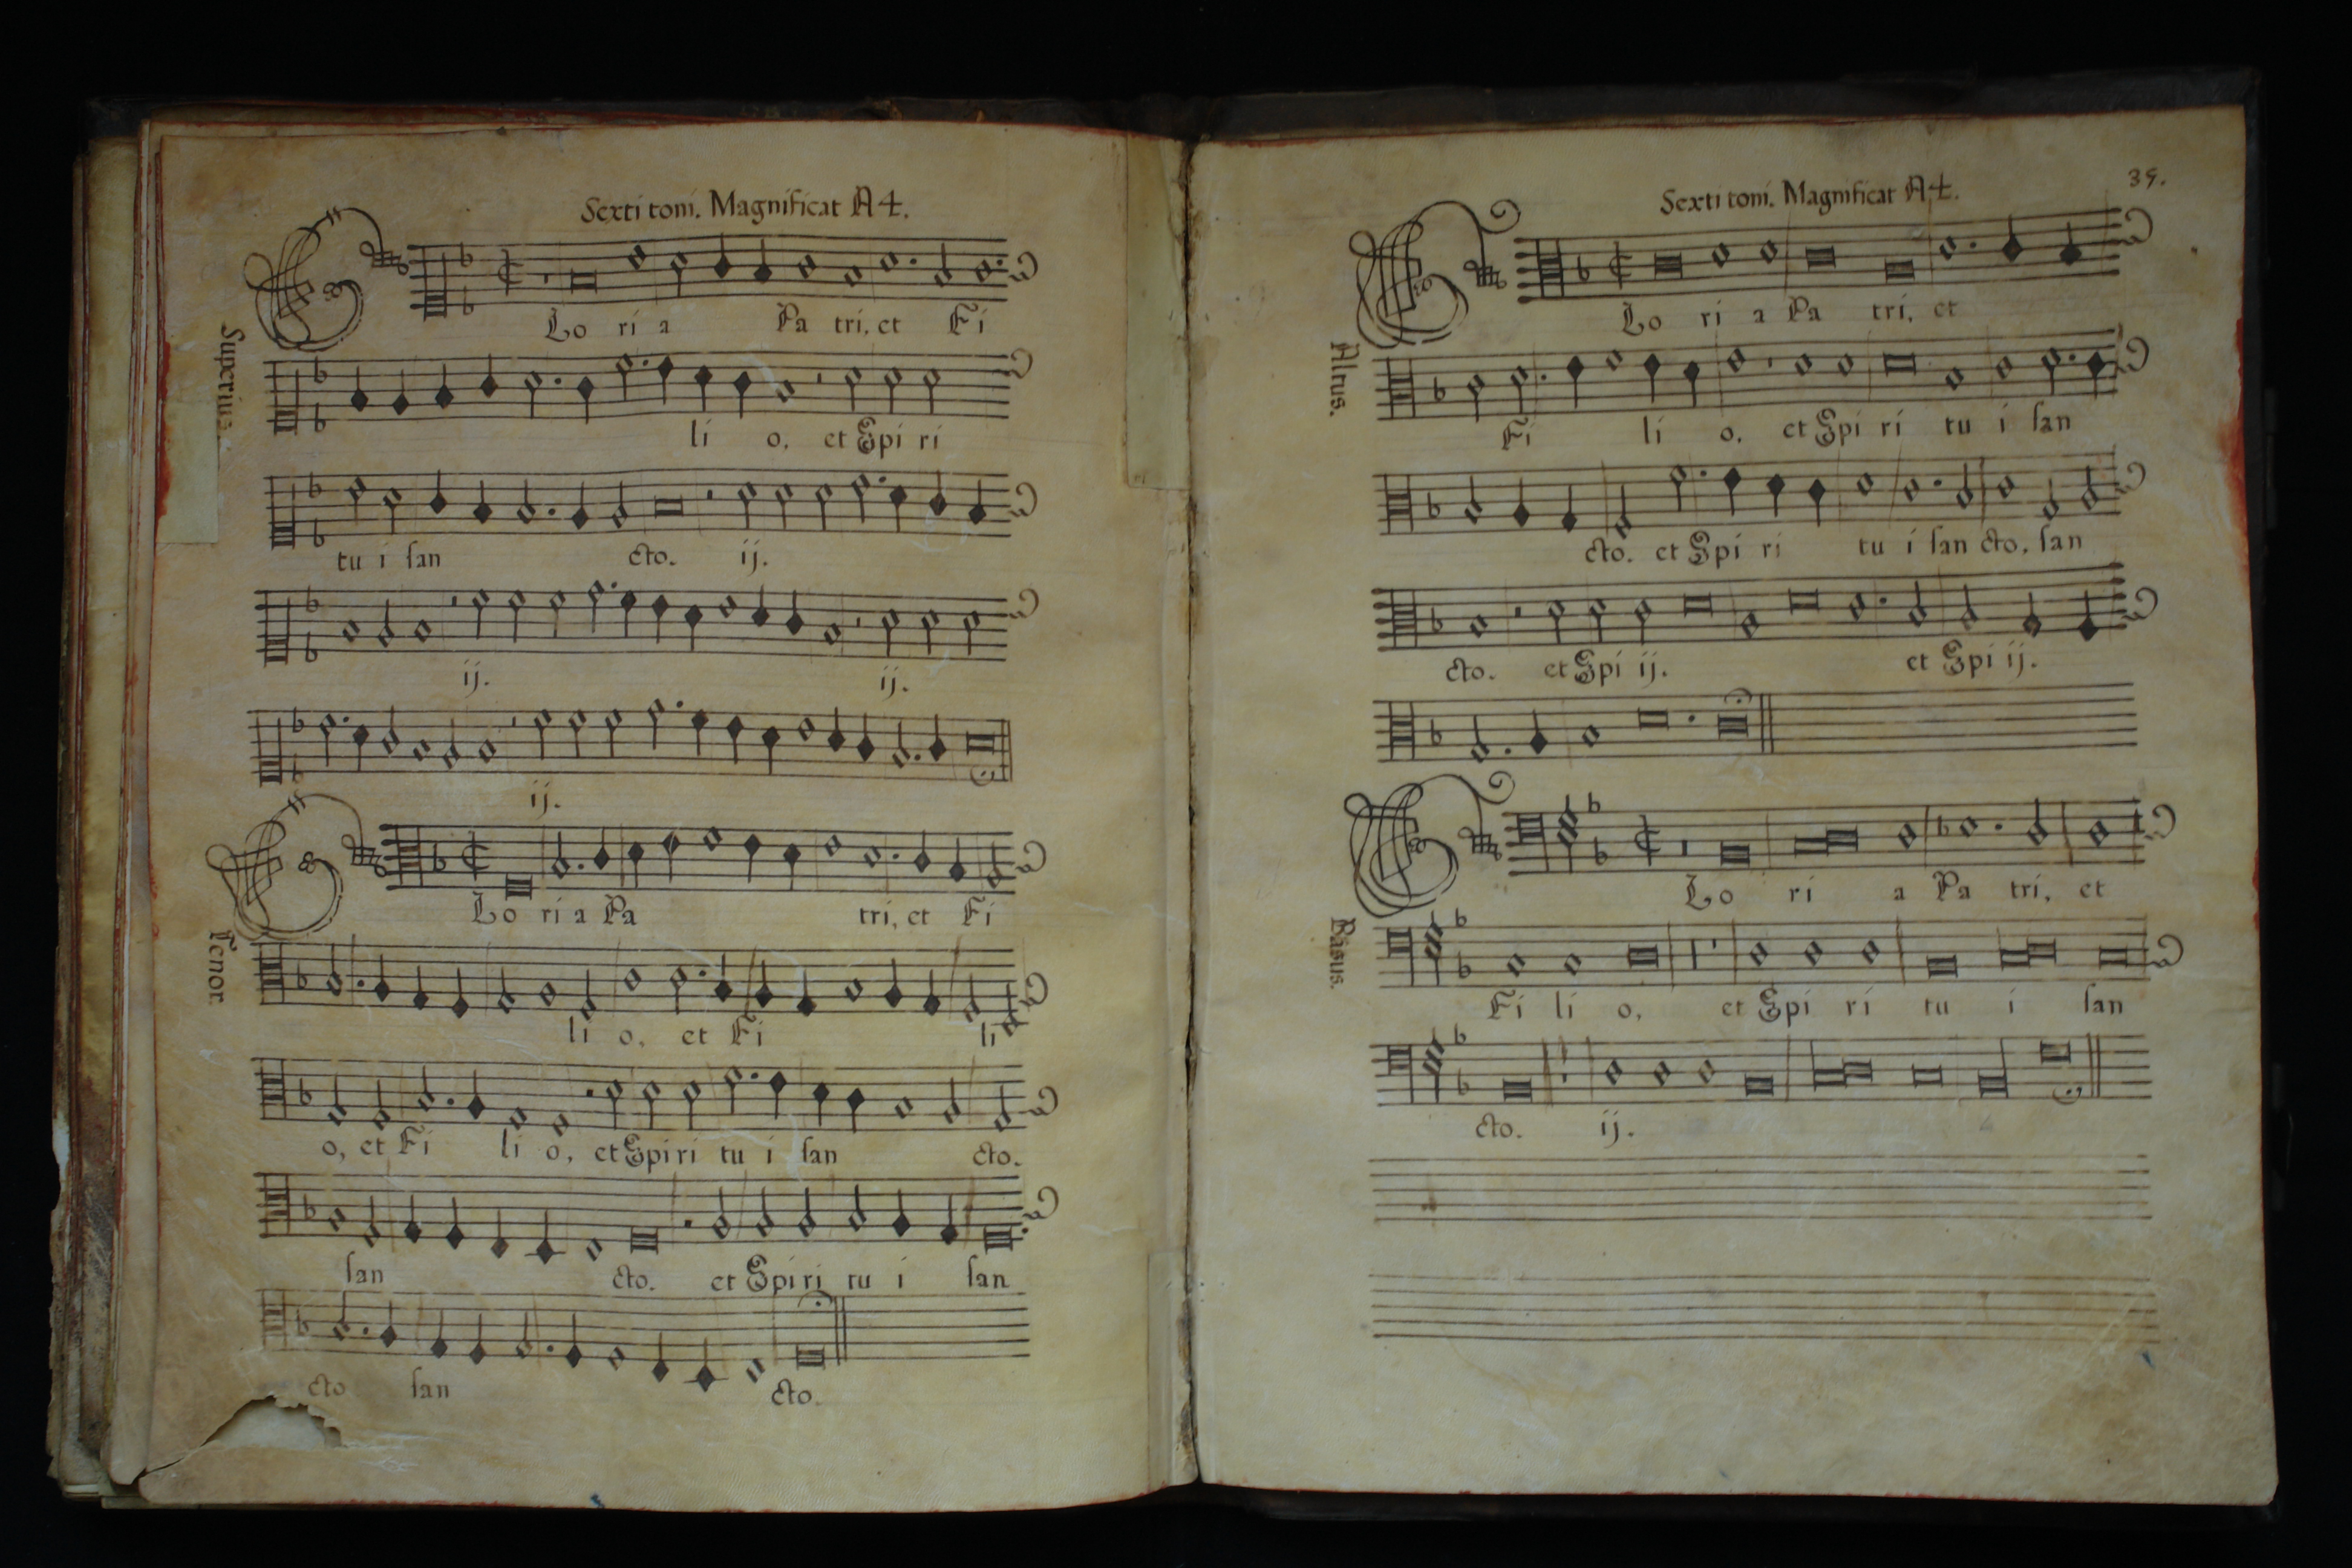 Sexti toni. Magnificat A 4.
Superius.
Glo ri a Pa tri, et Fi
li o, et Spi ri
tu i san cto. ij.
ij. ij.
ij.
Tenor.
Glo ri a Pa tri, et Fi
li o, et Fi li
o, et Fi li o, et Spi ri tu i san cto.
san cto. et Spi ri tu i san
cto san cto.
39.
Sexti toni. Magnificat A 4.
Altus.
Glo ri a Pa tri, et
Fi li o, et Spi ri tu i san
cto. et Spi ri tu i san cto, san
cto. et Spi ij. et Spi ij.
Basus.
Glo ri a Pa tri, et
Fi li o, et Spi ri tu i san
cto. ij.